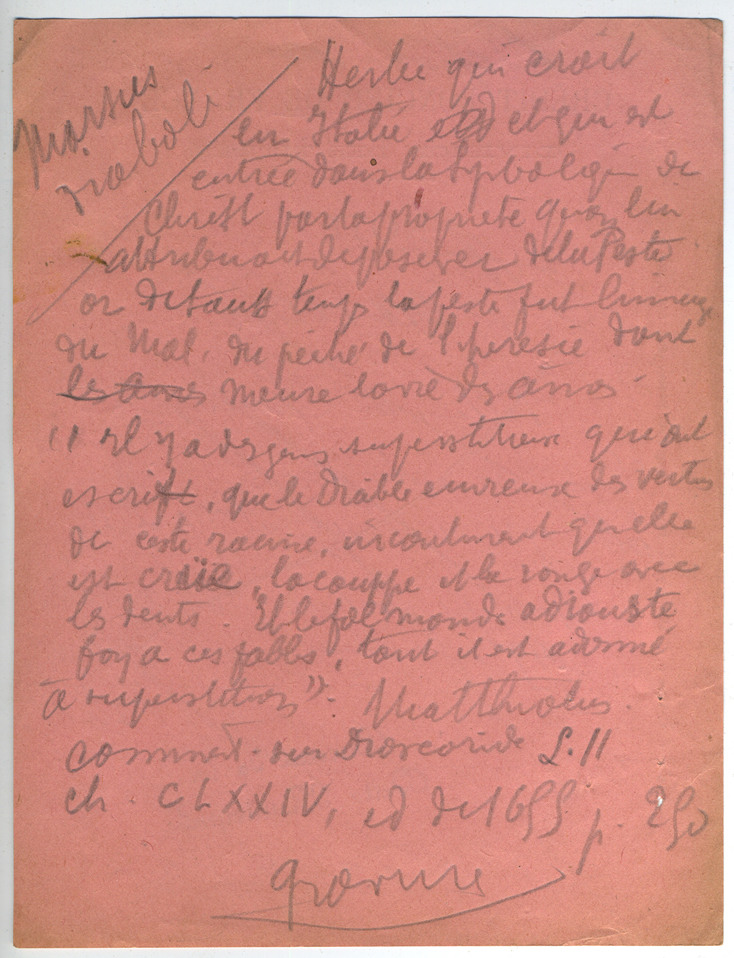 Morsus
diaboli
Herbe qui croit
en Italie et qui est
entrée dans la symbolique de
Christ par la propriété qu'on lui
attribuait de préserver de la Peste
or de tout temps la peste fut l'image
du Mal, du péché de l'heresie dont
les ames meure la vie des âmes
"Il y a des gens superstitieux qui ont
escrit, que le Diable envieux des vertus
de ceste racine, incontinent qu'elle
est creüe, la couppe et la ronge avec
les dents. Et le fol monde adiouste
foy a ces fables, tant il est adonné
à superstition". Matthiolus.
comment. sur Dioscoride L. II
ch. CLXXIV, ed de 1655 p. 250